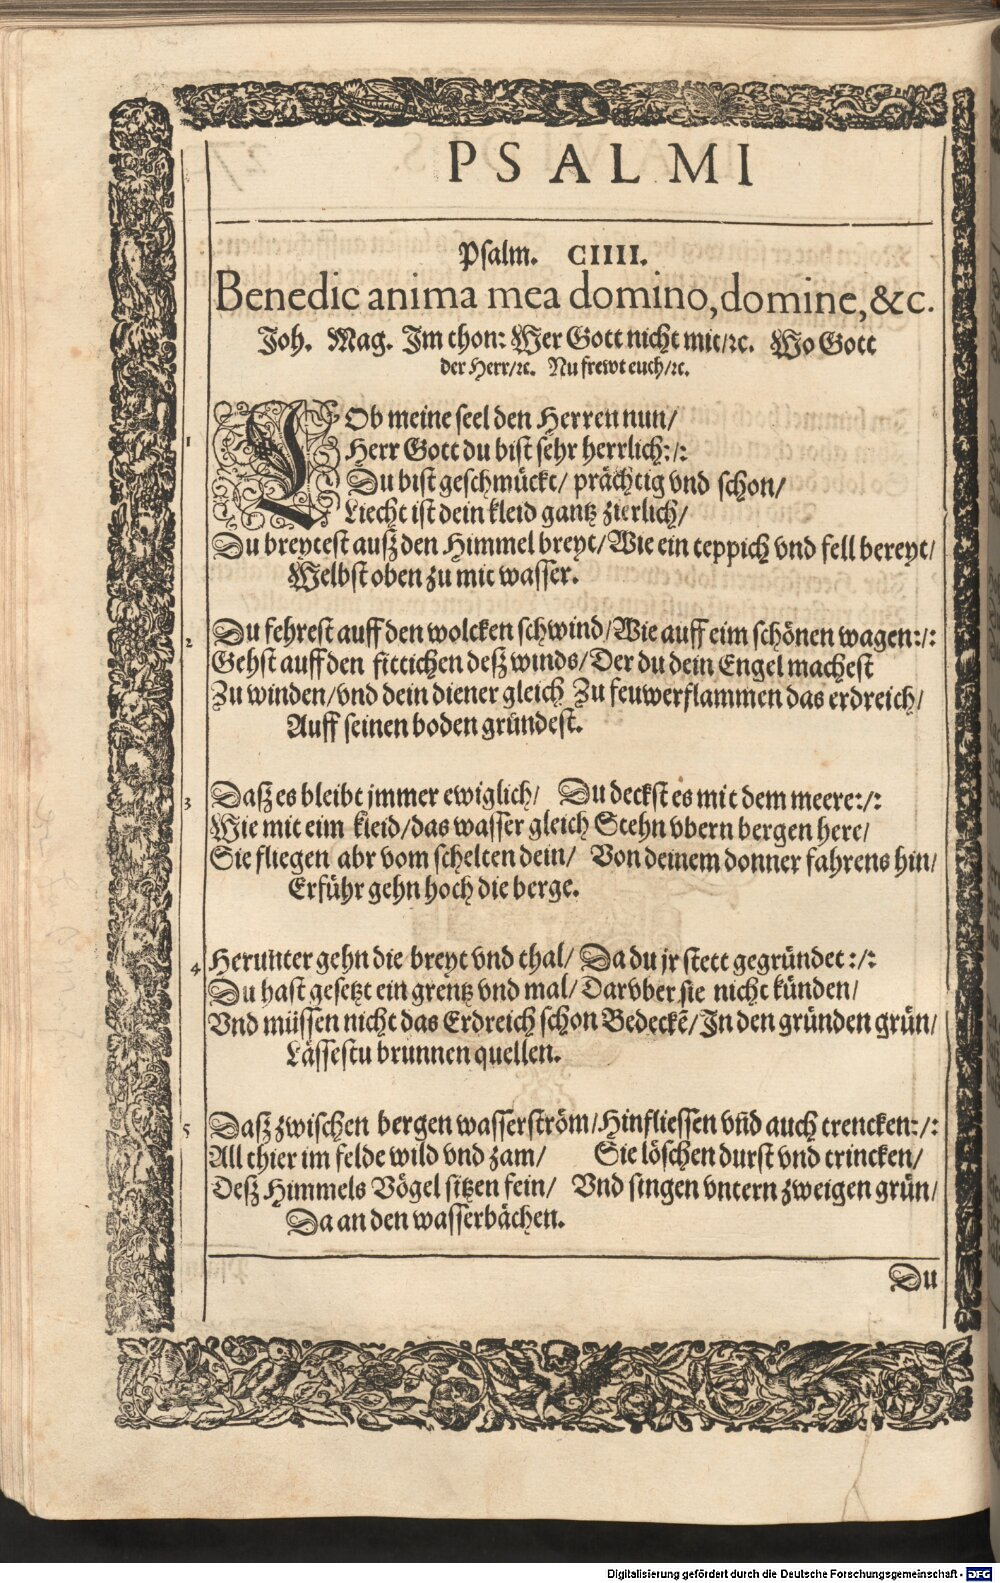 PSALMI
Psalm. CIIII.
Benedic anima mea domino, domine, &c.
Joh. Mag. Im thon: Wer Gott nicht mit/ꝛc. Wo Gott
der Herr/ꝛc. Nu frewt euch/ꝛc.
LOb meine seel den Herren nun/
1 Herr Gott du bist sehr herrlich:/:
Du bist geschmückt/ prächtig vnd schon/
Liecht ist dein kleid gantz zierlich/
Du breytest auß den Himmel breyt/ Wie ein teppich vnd fell bereyt/
Welbst oben zu mit wasser.
2 Du fehrest auff den wolcken schwind/ Wie auff eim schönen wagen:/:
Gehst auff den fittichen deß winds/ Der du dein Engel machest
Zu winden/ vnd dein diener gleich Zu feuwerflammen das erdreich/
Auff seinen boden gründest.
3 Daß es bleibt jmmer ewiglich/ Du deckst es mit dem meere:/:
Wie mit eim kleid/ das wasser gleich Stehn vbern bergen here/
Sie fliegen abr vom schelten dein/ Von deinem donner fahrens hin/
Erführ gehn hoch die berge.
4 Herunter gehn die breyt vnd thal/ Da du jr stett gegründet:/:
Du hast gesetzt ein grentz vnd mal/ Darvber sie nicht künden/
Vnd müssen nicht das Erdreich schon Bedeckē/ In den gründen grün/
Lässestu brunnen quellen.
5 Daß zwischen bergen wasserström/ Hinfliessen vñd auch trencken:/:
All thier im felde wild vnd zam/ Sie löschen durst vnd trincken/
Deß Himmels Vögel sitzen fein/ Vnd singen vntern zweigen grün/
Da an den wasserbächen.
Du
Digitalisierung gefördert durch die Deutsche Forschungsgemeinschaft - DFG